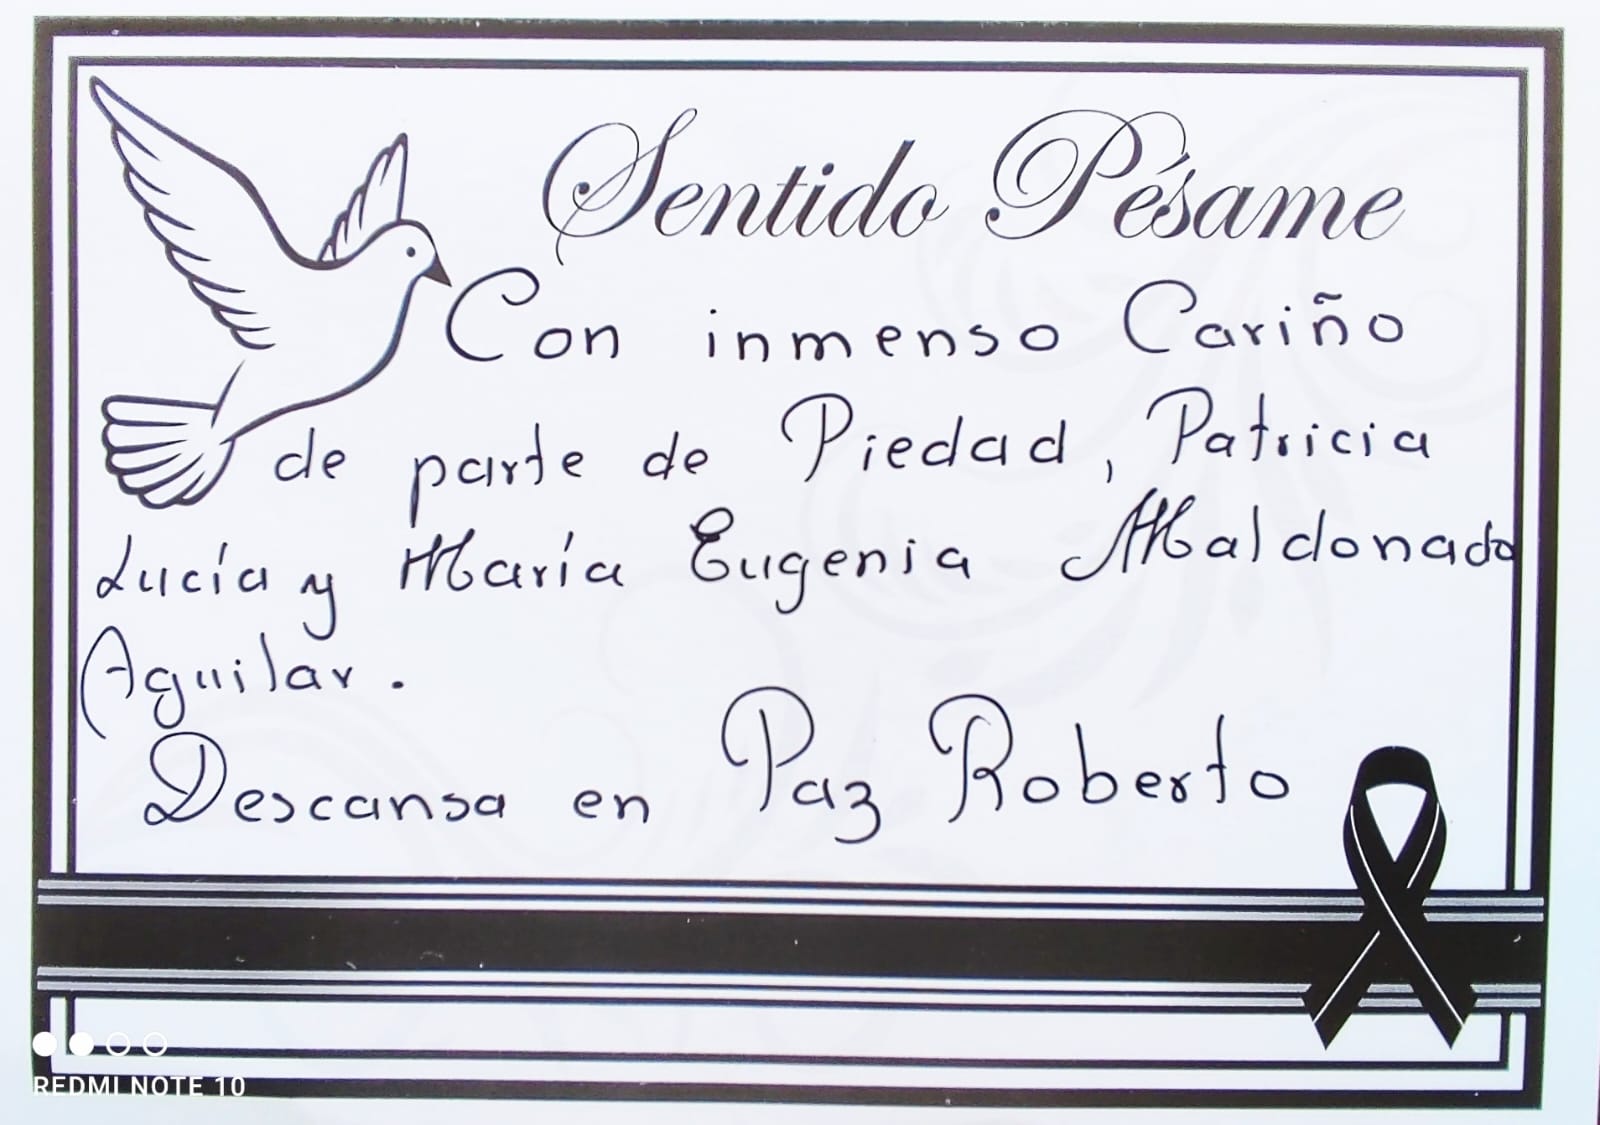 Sentido Pésame
Con inmenso Cariño
de parte de Piedad, Patricia
Lucía y María Eugenia Maldonado
Aguilar.
Descansa en Paz Roberto
REDMI NOTE 10